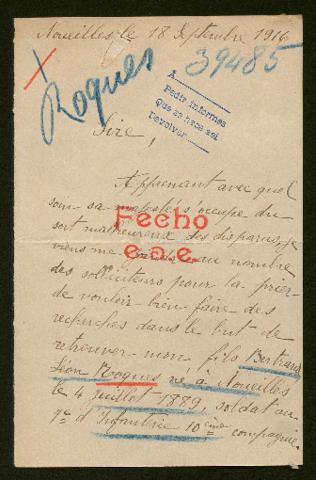 Noueilles le 18 Septembre 1916
39485
X
Roques
A
Pedir informes
que se hace así
Devolver
Sire,
Apprenant avec quel
soin sa majesté s'occupe du
sort malheureux des disparus, je
viens me au nombre
des solliciteurs pour la prier
de vouloir bien faire des
recherches dans le but de
retrouver mon fils Bertrand
Léon Roques né à Noueilles
le 4 juillet 1889, soldat au
d'Infanterie 10ème compagnie.
Fecho
e.n.e.